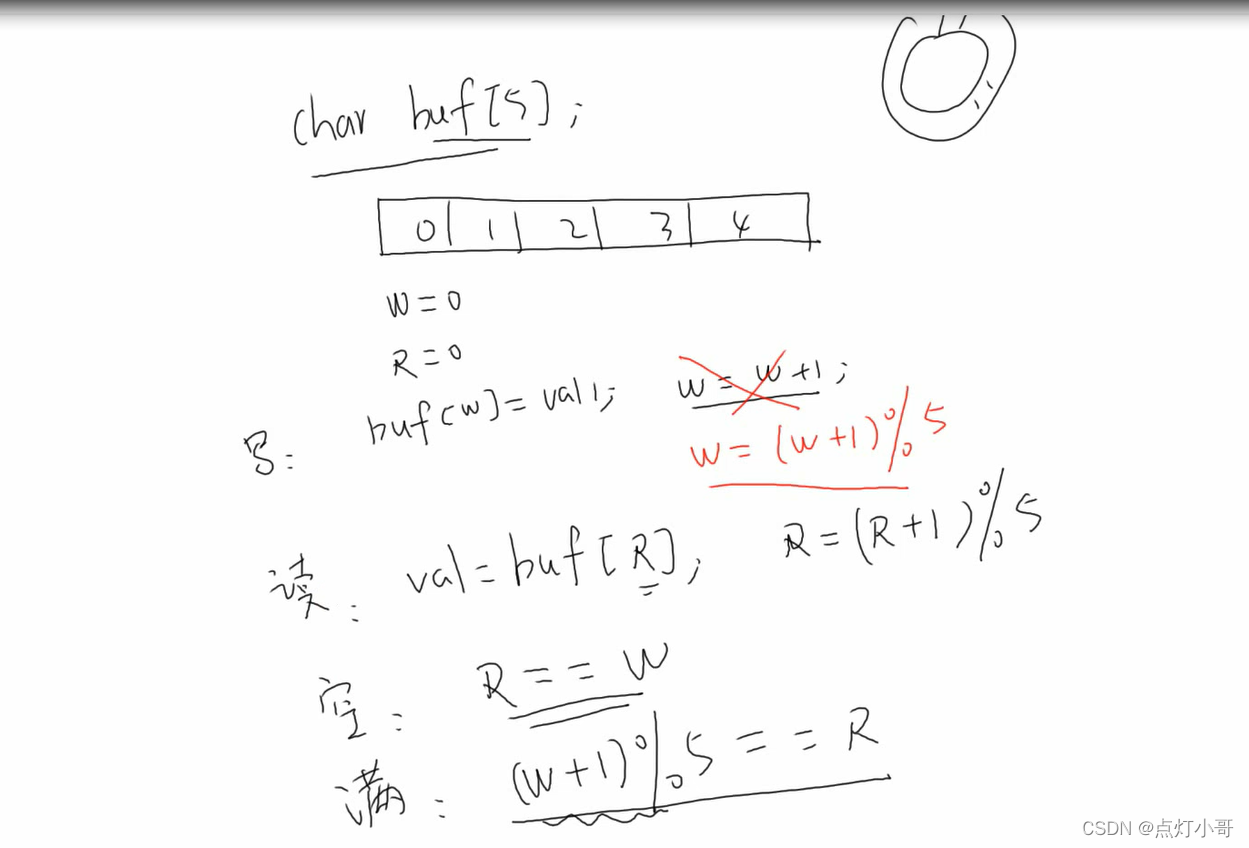 char buf[5];
0 1 2 3 4
W=0
R=0
buf[w]=val1; w=w+1;
写: w=(w+1)%5
读: val=buf[R]; R=(R+1)%5
空: R==W
满: (W+1)%5==R
CSDN @点灯小哥